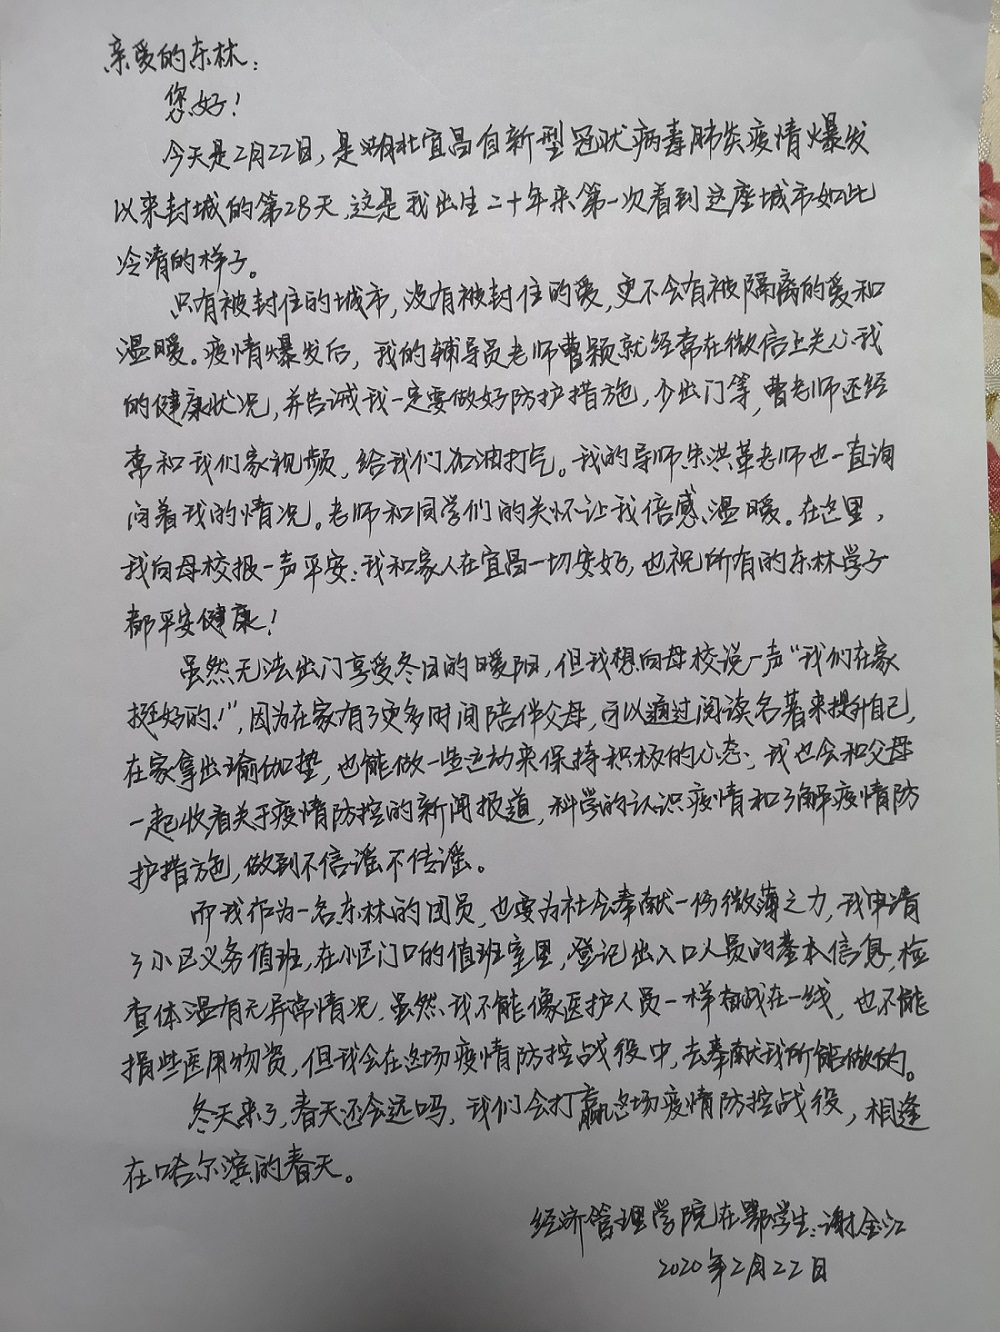 亲爱的东林：
您好！
今天是2月22日，是湖北宜昌自新型冠状病毒肺炎疫情爆发
以来封城的第28天，这是我出生二十年来第一次看到这座城市如此
冷清的样子。
只有被封住的城市，没有被封住的爱，更不会有被隔离的爱和
温暖。疫情爆发后，我的辅导员老师曹颖就经常在微信上关心我
的健康状况，并告诫我一定要做好防护措施，少出门等，曹老师还经
常和我们家视频，给我们加油打气。我的导师朱洪革老师也一直询
问着我的情况。老师和同学们的关怀让我倍感温暖。在这里，
我向母校报一声平安：我和家人在宜昌一切安好，也祝所有的东林学子
都平安健康！
虽然无法出门享受冬日的暖阳，但我想向母校说一声“我们在家
挺好的！”，因为在家有了更多时间陪伴父母，可以通过阅读名著来提升自己，
在家拿出瑜伽垫，也能做一些运动来保持积极的心态；我也会和父母
一起收看关于疫情防控的新闻报道，科学的认识疫情和了解疫情防
护措施，做到不信谣不传谣。
而我作为一名东林的团员，也要为社会奉献一份微薄之力，我申请
了小区义务值班，在小区门口的值班室里，登记出入口人员的基本信息，检
查体温有无异常情况。虽然我不能像医护人员一样奋战在一线，也不能
捐些医用物资，但我会在这场疫情防控战役中，去奉献我所能做的。
冬天来了，春天还会远吗，我们会打赢这场疫情防控战役，相逢
在哈尔滨的春天。
经济管理学院在鄂学生：谢金江
2020年2月22日